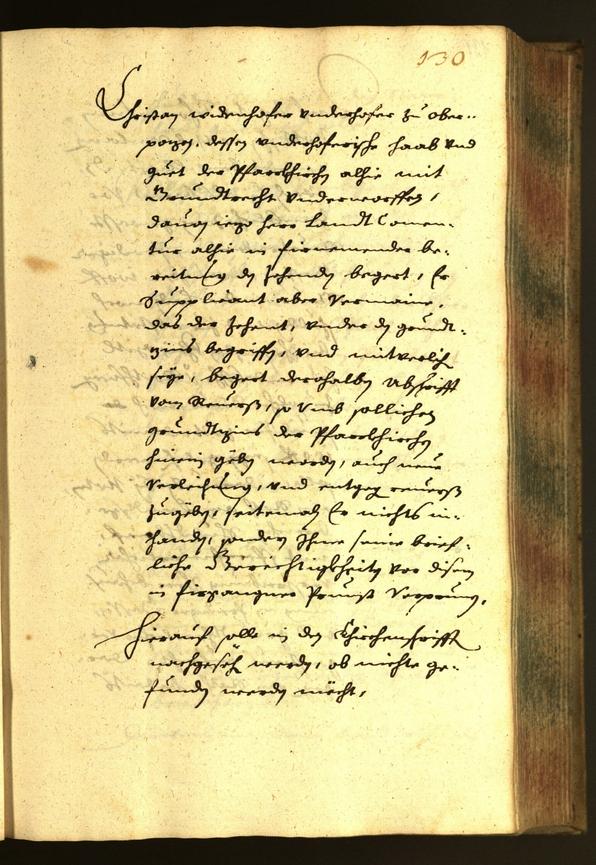 130
Christan widenhofer vnderhofer zu Ober-
pozen, dessen vnderhoferische haab vnd
guet der Pfarrkhirchen alhie mit
Grundtrecht vnderworffen,
dauon iezo herr Landt Comen-
tur alhie in firnemender be-
reitung den zehenden begert, Er
Supplicant aber vermaine,
das der zehent, vnder den grundt-
zins begriffen, vnd mitverlich
seye, begert derohalben Abschrifft
vom Reuerß, so vmb sollichen
grundtzins der Pfarrkhirchen
hinein geben worden, auch neue
verleichung, vnd entgegen reuerß
zugeben, seitemaln Er nichts in-
handen, sondern Ihme seine brief-
liche Gerechtigkheiten vor disem
in firgangner Prunst verprunen,
Hierauf solle in den Khirchenschrifften
nachgesehen werden, ob nichts ge-
funden werden mecht,